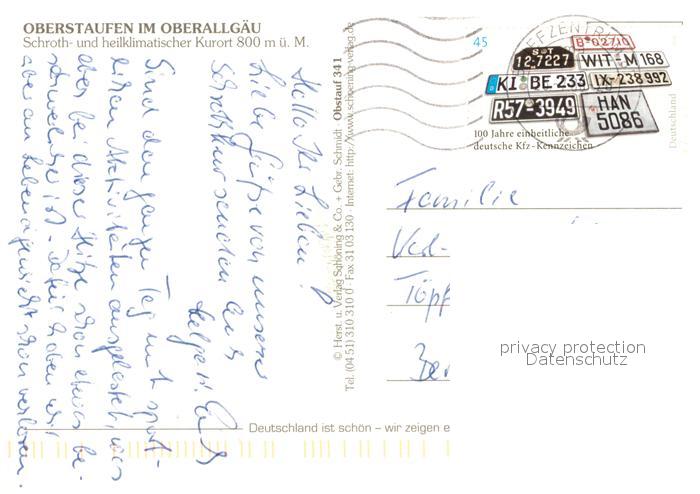 OBERSTAUFEN IM OBERALLGÄU
Schroth- und heilklimatischer Kurort 800 m ü. M.
Hallo Ihr Lieben!
Liebe Grüße von unserer
Schrothkur senden Euch
Helga +
Sind den ganzen Tag mit sport-
lichen Aktivitäten ausgelastet, was
aber bei dieser Hitze schon etwas be-
schwerlich ist - dafür haben wir
aber an Lebendgewicht schon verloren.
© Herst. u. Verlag Schöning & Co. + Gebr. Schmidt Obstauf 341
Tel. (04 51) 310 310 0 Fax 31 03 130 · Internet: http://www.schoening-verlag.de
45
BRIEFZENTRUM
B·02710
S T
12·7227
WIT-M 168
KI BE 233
IX-238 992
R57·3949
HAN
5086
100 Jahre einheitliche
deutsche Kfz-Kennzeichen
Deutschland
Familie
Töpf
Ber
privacy protection
Datenschutz
Deutschland ist schön – wir zeigen e